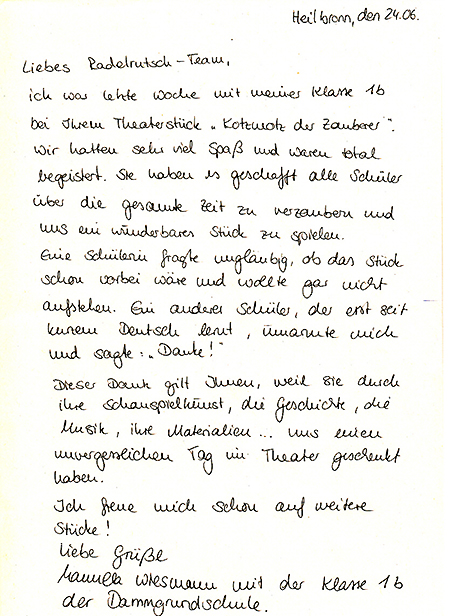 Heilbronn, den 24.06.
Liebes Radelrutsch-Team,
ich war letzte Woche mit meiner Klasse 1b
bei Ihrem Theaterstück „Kotzmotz der Zauberer".
Wir hatten sehr viel Spaß und waren total
begeistert. Sie haben es geschafft alle Schüler
über die gesamte Zeit zu verzaubern und
uns ein wunderbares Stück zu spielen.
Eine Schülerin fragte ungläubig, ob das Stück
schon vorbei wäre und wollte gar nicht
aufstehen. Ein anderer Schüler, der erst seit
kurzem Deutsch lernt, umarmte mich
und sagte: „Danke!"
Dieser Dank gilt Ihnen, weil Sie durch
ihre Schauspielkunst, die Geschichte, die
Musik, ihre Materialien... uns einen
unvergesslichen Tag im Theater geschenkt
haben.
Ich freue mich schon auf weitere
Stücke!
Liebe Grüße
Manuela Wiesmann mit der Klasse 1b
der Dammgrundschule.